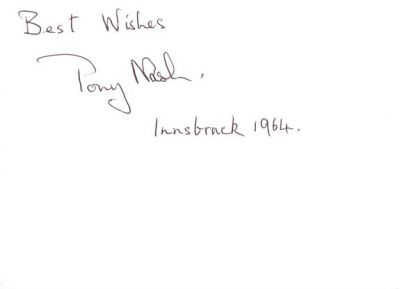 Best Wishes
Tony Nash.
Innsbruck 1964.